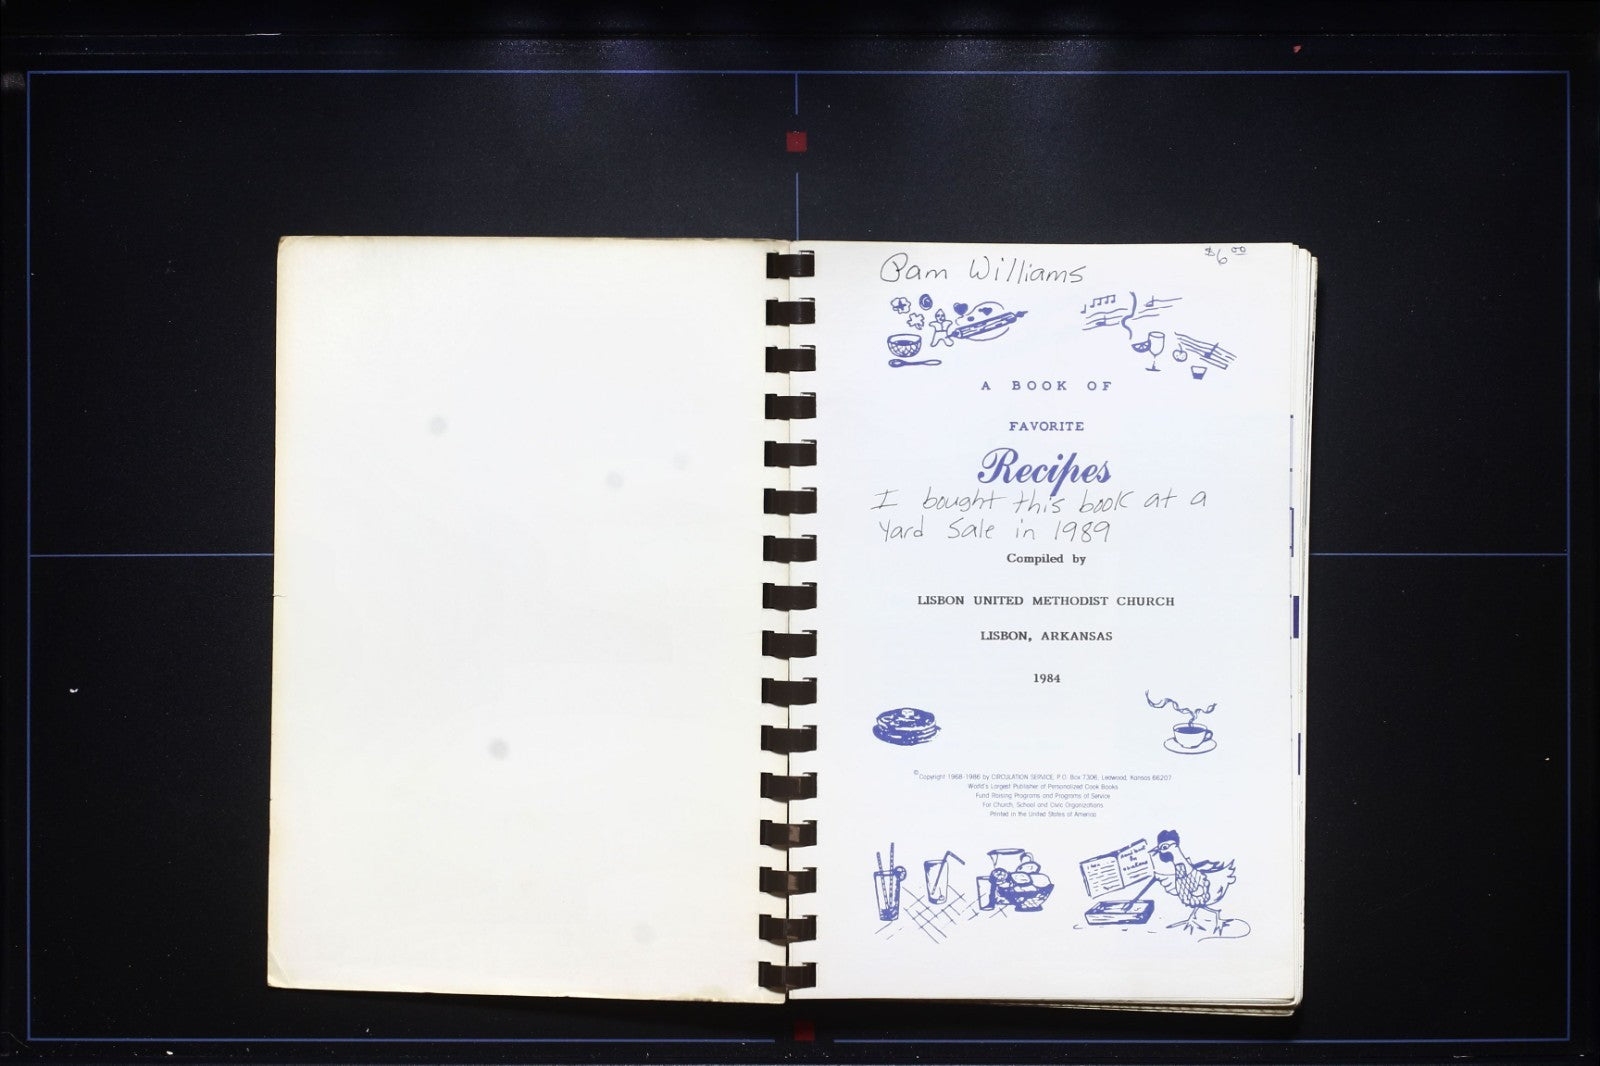 Pam Williams
$6.00
A BOOK OF
FAVORITE
Recipes
I bought this book at a
Yard Sale in 1989
Compiled by
LISBON UNITED METHODIST CHURCH
LISBON, ARKANSAS
1984
© Copyright 1968-1986 by CIRCULATION SERVICE, P.O. Box 7306, Leawood, Kansas 66207
World's Largest Publisher of Personalized Cook Books
Fund Raising Programs and Programs of Service
For Church, School and Civic Organizations
Printed in the United States of America